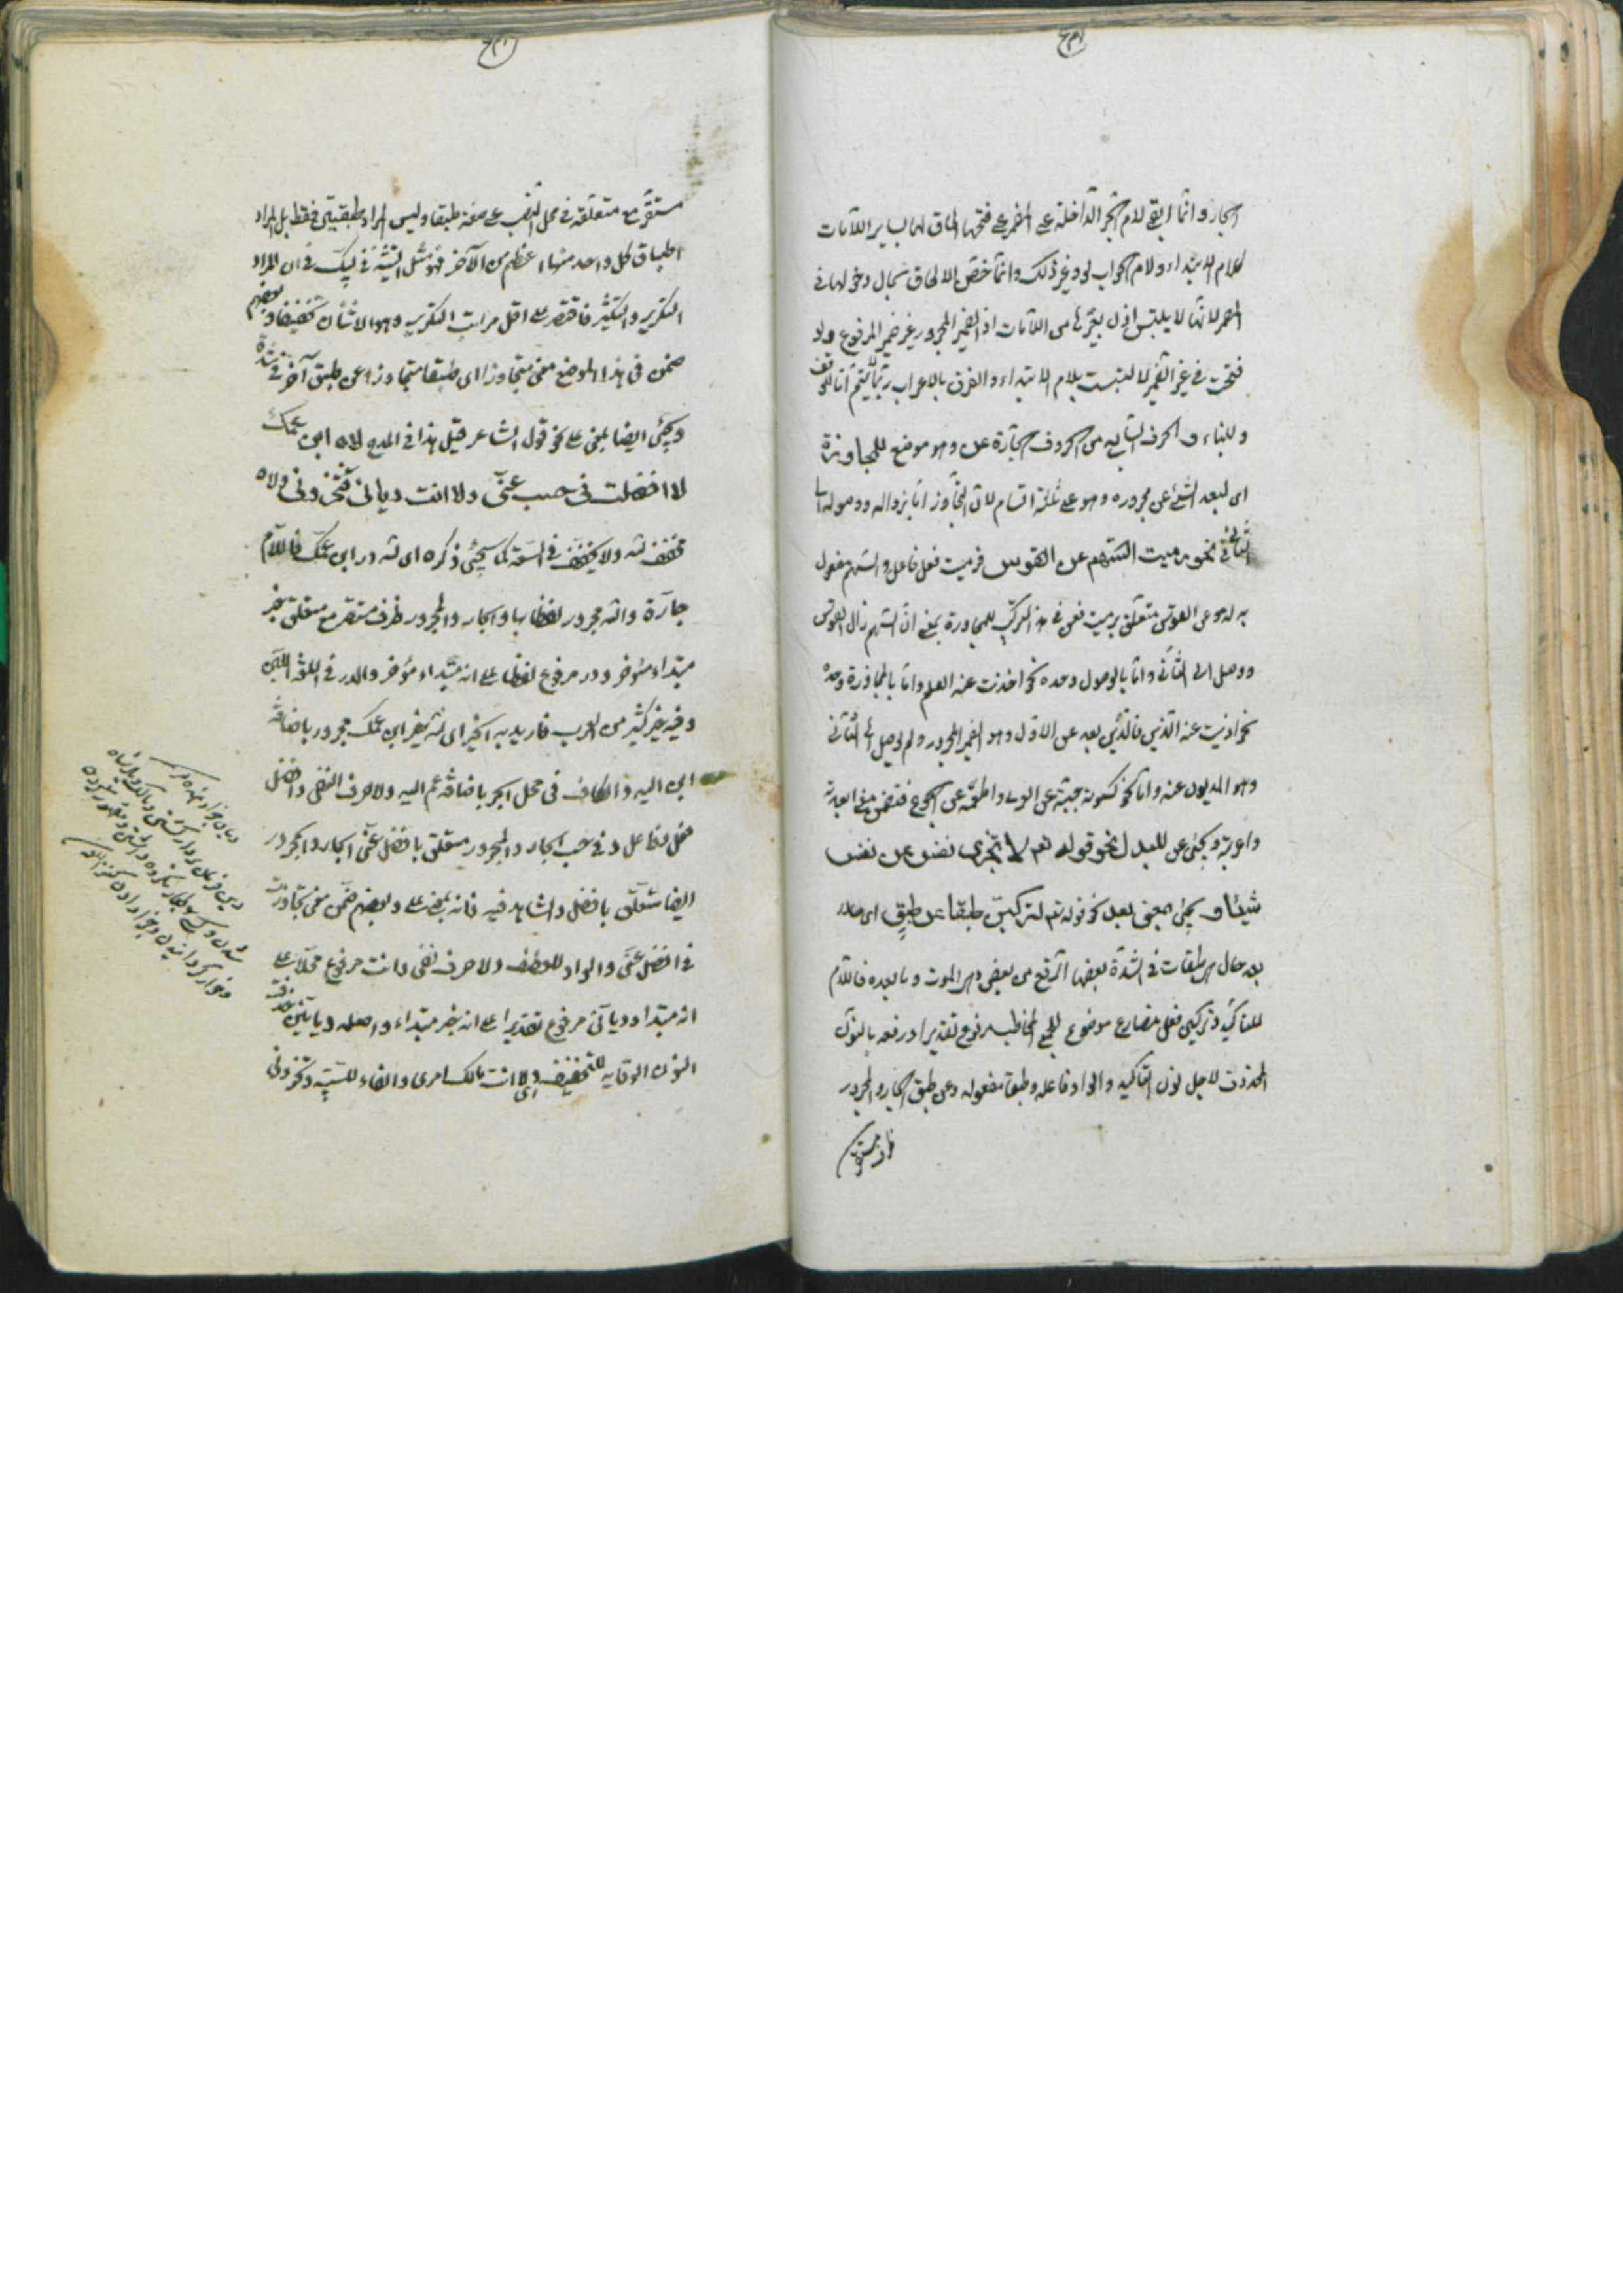 الجار وانما ابقى لام الجر الداخلة على المضمر على فتحها الحاق لها بساير اللامات
كلام الابتداء ولام جواب لو وغير ذلك وانما خص الالحاق بحال دخولها فى
المضمر لانها لا يلتبس اذن بغيرها من اللامات اذ الضمير المجرور غير ضمير المرفوع ولو
فتحت فى غير الضمير لالتبست بلام الابتداء والفرق بالاعراب ربما لم يتم اما للوقف
وللبناء و الحرف السابع من الحروف الجارة عن وهو موضع للمجاوزة
اى لبعد الشئ عن مجروره وهو على ثلثة اقسام لان التجاوز اما بزواله ووصوله الى
الثانى نحو رميت السهم عن القوس فرميت فعل فاعل والسهم مفعول
به له وعن القوس متعلق برميت فعن فى هذا التركيب للمجاوزة بمعنى ان السهم زال القوس
ووصل الى الثانى واما بالوصول وحده نحو اخذت عنه العلم واما بالمجاوزة وحده
نحو اديت عنه الدين فالدين بعد عن الاول وهو الضمير المجرور ولم يصل الى الثانى
وهو المديون عنه واما نحو كسوته جبته عن العرى واطعمه عن الجوع فتضمن معنى ابعدته
واعريه ويجئ عن للبدل نحو قوله تعم لا تجزى نفس عن نفس
شيئا و يجئ بمعنى بعد نحو قوله تعم لتركبن طبقا عن طبق اى حالا
بعد حال هى طبقات فى الشدة بعضها ارفع من بعض وهى الموت وما بعده فاللام
للتاكيد وتركبن فعل مضارع موضوع للجمع المخاطب مرفوع تقديرا ورفعه بالنون
المحذوف لاجل نون التاكيد والواو فاعله وطبقا مفعوله وعن طبق الجار والمجرور
ظرف مستقر
مستقر مع متعلقه فى محل النصب على صفة طبقا وليس المراد طبقتين فقط بل المراد
اطباق كل واحد منها اعظم من الآخر فهو مثل التثنية فى لبيك فى ان المراد
التكرير والتكثير فاقتصر على اقل مراتب التكرير وهو الاثنان تخفيفا وبعضهم
ضمن فى هذا الموضع معنى متجاوزا اى طبقا متجاوزا عن طبق آخر فى شدة
ويجئ ايضا بمعنى على نحو قول الشاعر قيل هذا فى المدح لاه ابن عمك
لا افضلت فى حسب عنى ولا انت ديانى فتخزونى ولاه
مخفف لله ولا يخفف فى السعة كما سيجئ ذكره اى لله در ابن عمك فاللام
جارة والله مجرور لفظا بها والجار والمجرور ظرف مستقر مع متعلق خبر
مبتداء مؤخر ودر مرفوع لفظا على انه مبتداء مؤخر والدر فى اللغة اللبن
وفيه خير كثير من العرب فاريد به الخير اى لله خير ابن عمك مجرور باضافة
ابن اليه والكاف فى محل الجر باضافة عم اليه ولا حرف النفى وافضل
فعل وفاعل و فى حسب الجار والمجرور متعلق بافضل عنى الجار والمجرور
ايضا متعلق بافضل والشاهد فيه فانه بمعنى على وبعضهم ضمن معنى تجاوزت
فى افضل عنى والواو للعطف ولا حرف نفى وانت مرفوع محلا على
انه مبتداء وديانى مرفوع تقديرا على انه خبر مبتداء واصله ديانينى حذفت
النون الوقايه للتخفيف اى ولا انت مالك امرى والفاء للسببية وتخزونى